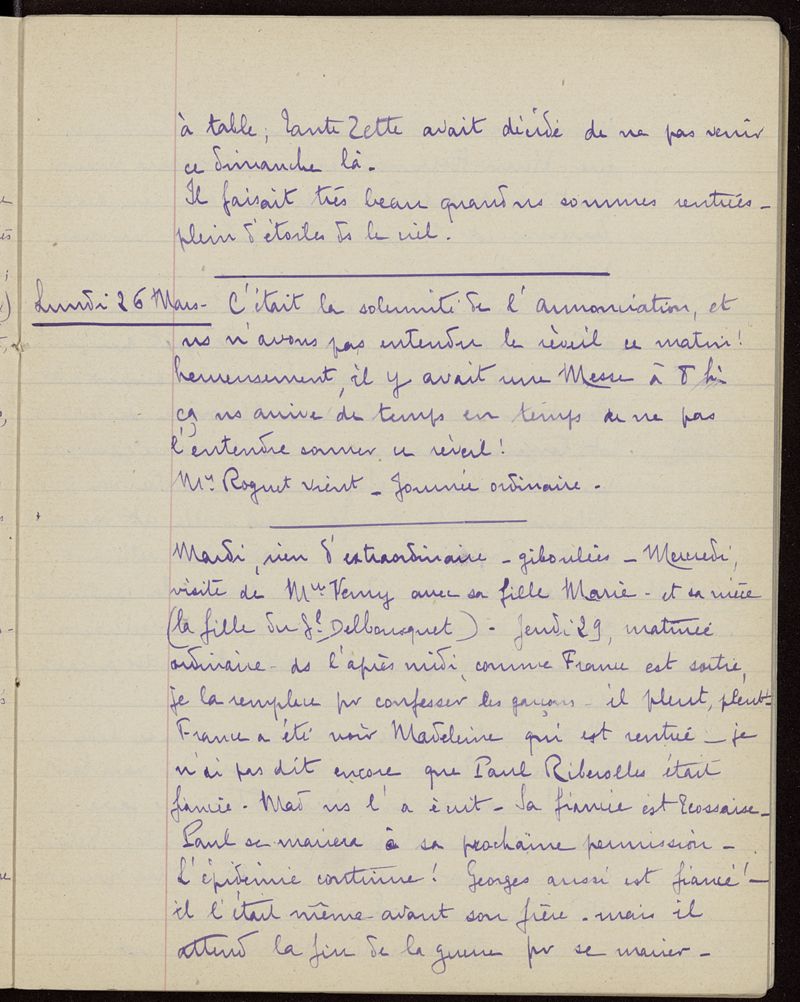 à table, Tante Zette avait décidé de ne pas venir
ce dimanche là.
Il faisait très beau quand ns sommes rentrées -
plein d'étoiles ds le ciel.
Lundi 26 Mars - C'était la solennité de l'annonciation, et
ns n'avons pas entendu le réveil ce matin!
heureusement, il y avait une Messe à 8h
ça ns arrive de temps en temps de ne pas
l'entendre sonner ce réveil!
Mr Roguet vient - Journée ordinaire.
Mardi, rien d'extraordinaire - giboulées - Mercredi,
visite de Me Verny avec sa fille Marie - et sa nièce
(la fille du Gl Delbousquet) - Jeudi 29, matinée
ordinaire - ds l'après midi, comme France est sortie,
je la remplace pr confesser les garçons - il pleut, pleut -
France a été voir Madeleine qui est rentrée - je
n'ai pas dit encore que Paul Riberolles était
fiancé - Mad ns l'a écrit - Sa fiancée est Ecossaise -
Paul se mariera à sa prochaine permission -
L'épidémie continue! Georges aussi est fiancé! -
il l'était même avant son frère - mais il
attend la fin de la guerre pr se marier -